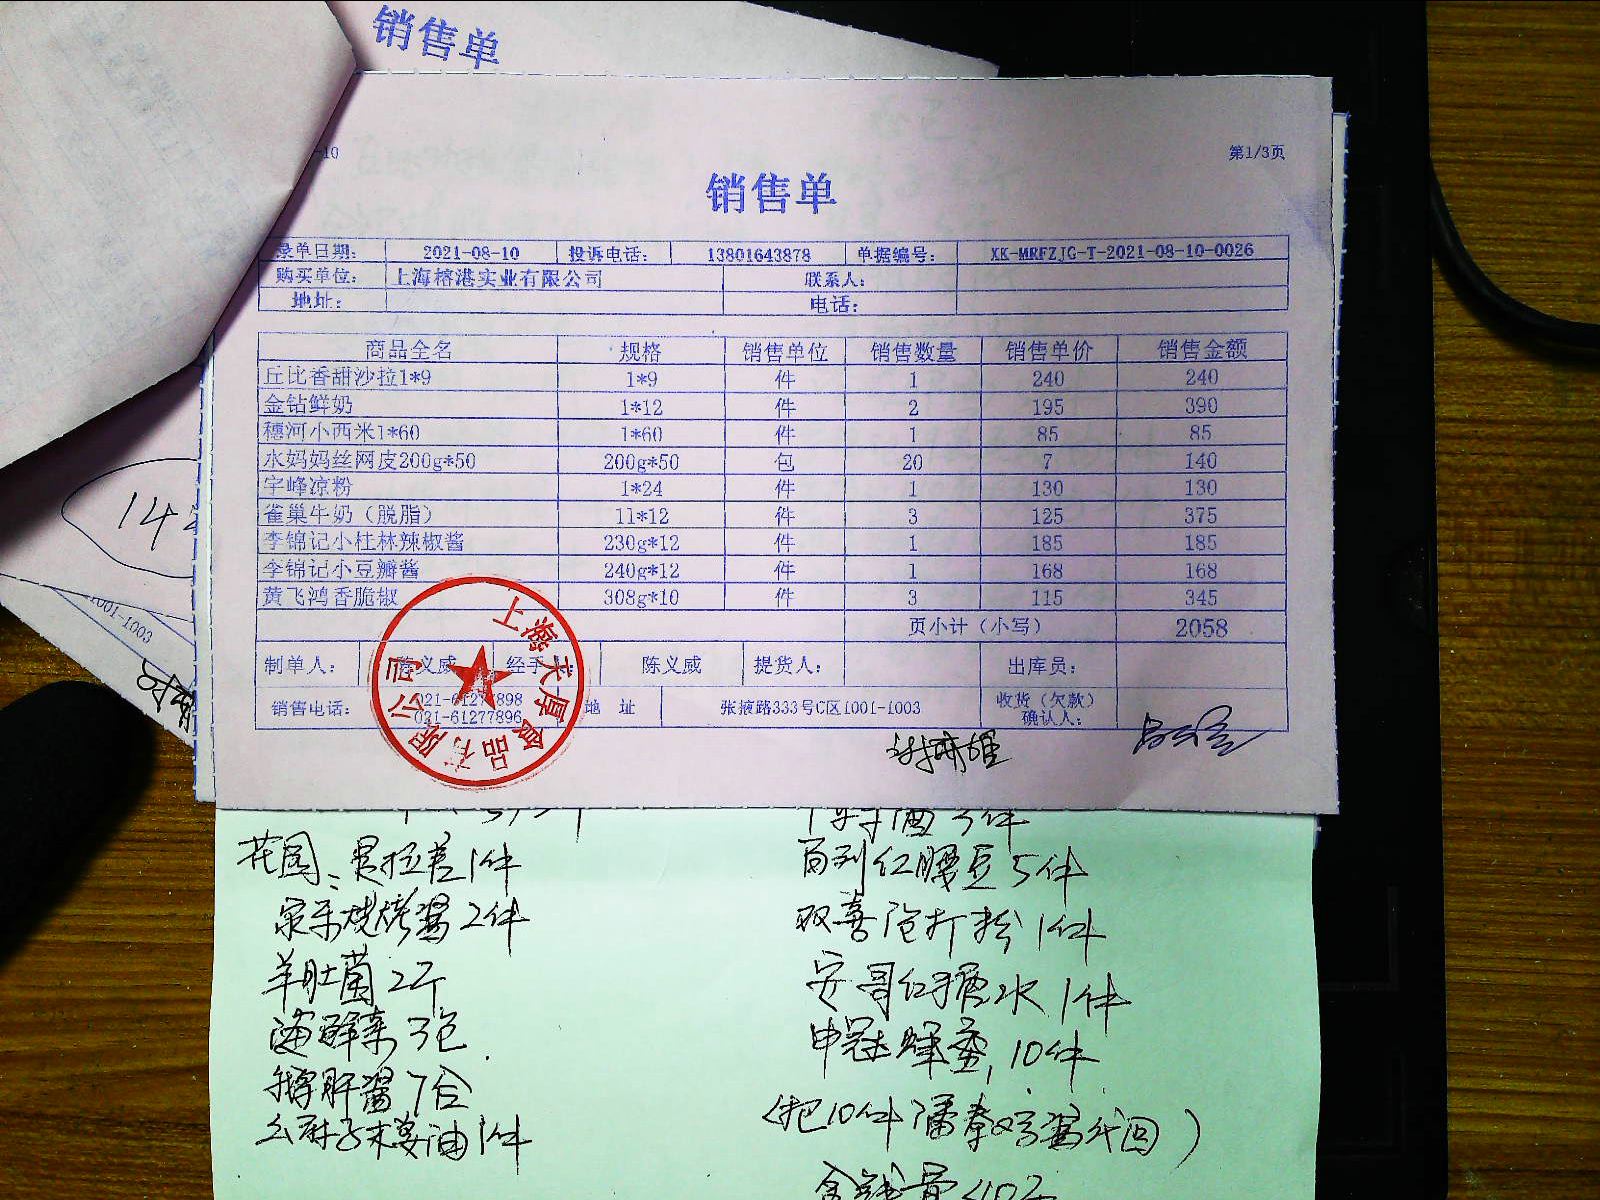 销售单
-10
第1/3页
销售单
录单日期： 2021-08-10 投诉电话： 13801643878 单据编号： XK-MRFZJG-T-2021-08-10-0026
购买单位： 上海榕港实业有限公司 联系人：
地址： 电话：
商品全名 规格 销售单位 销售数量 销售单价 销售金额
丘比香甜沙拉1*9 1*9 件 1 240 240
金钻鲜奶 1*12 件 2 195 390
穗河小西米1*60 1*60 件 1 85 85
水妈妈丝网皮200g*50 200g*50 包 20 7 140
宇峰凉粉 1*24 件 1 130 130
雀巢牛奶（脱脂） 11*12 件 3 125 375
李锦记小桂林辣椒酱 230g*12 件 1 185 185
李锦记小豆瓣酱 240g*12 件 1 168 168
黄飞鸿香脆椒 308g*10 件 3 115 345
页小计（小写） 2058
制单人： 陈义威 经手人 陈义威 提货人： 出库员：
销售电话： 021-61277898 地 址 张掖路333号C区1001-1003 收货（欠款）
021-61277896 确认人：
上海天厚食品有限公司
14
1001-1003
花园 是拉差1件
烧烤酱2件
羊肚菌2斤
海鲜菜3包
鹅肝酱7合
么麻子木姜油1件
酒3件
百列红腰豆5件
双喜泡打粉1件
安哥红糖水1件
申冠蜂蜜10件
(把10件潘泰鸡酱代回)